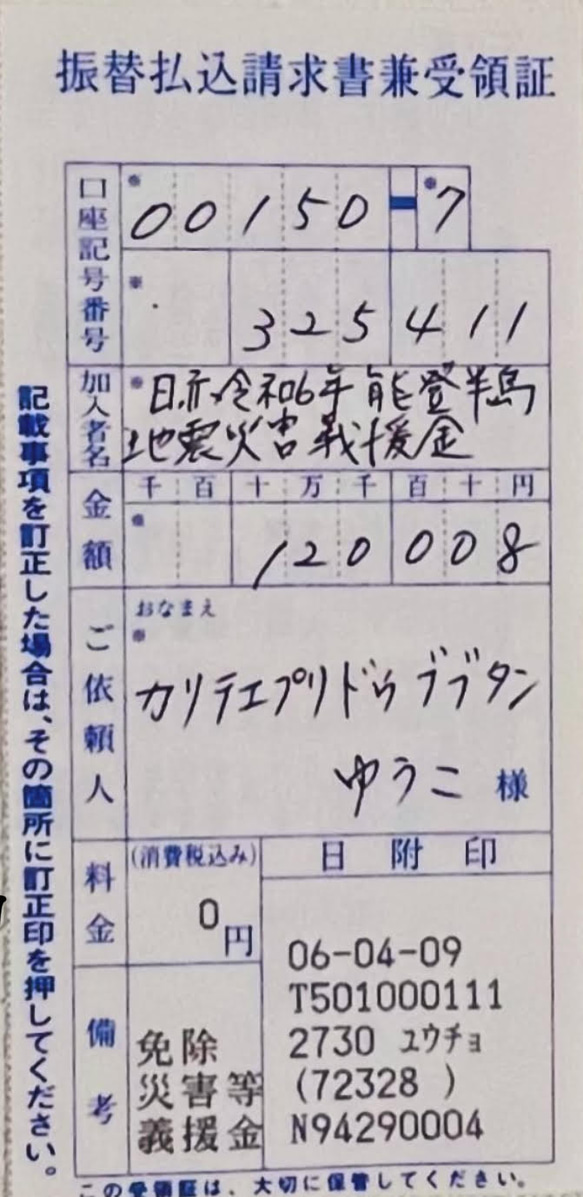 振替払込請求書兼受領証
口座記号番号
00150-7
325411
加入者名
日赤令和6年能登半島
地震災害義援金
金額
千百十万千百十円
120008
ご依頼人
おなまえ
カリテエプリドゥブブタン
ゆうこ 様
料金
(消費税込み)
0円
日附印
06-04-09
T501000111
2730 ユウチョ
(72328 )
N94290004
備考
免除
災害等
義援金
記載事項を訂正した場合は、その箇所に訂正印を押してください。
この受領証は、大切に保管してください。